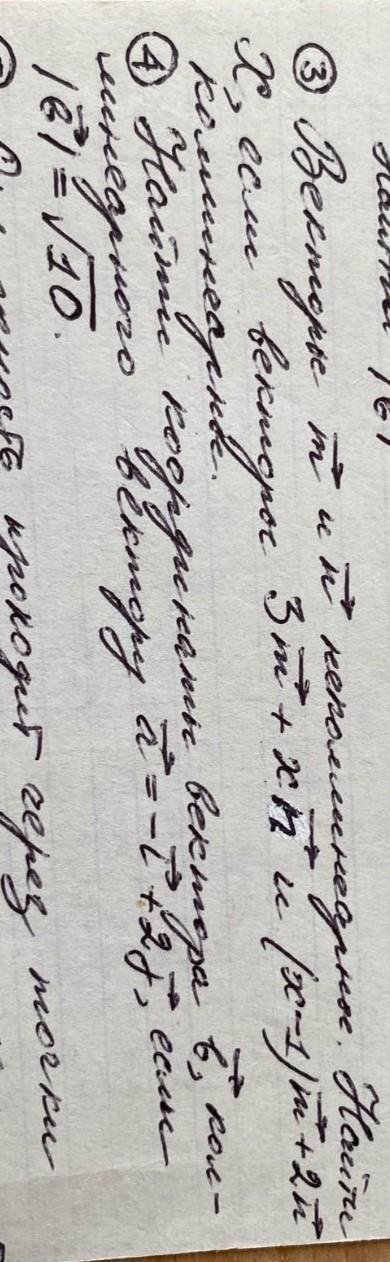 ③ Векторы m⃗ и n⃗ неколлинеарные. Найти
x, если векторы 3m⃗ + xn⃗ и (x-1)m⃗ + 2n⃗
коллинеарные.
④ Найти координаты вектора b⃗, кол-
линеарного вектору a⃗ = -i⃗ + 2j⃗, если
|b⃗| = √10.
проходит через точки